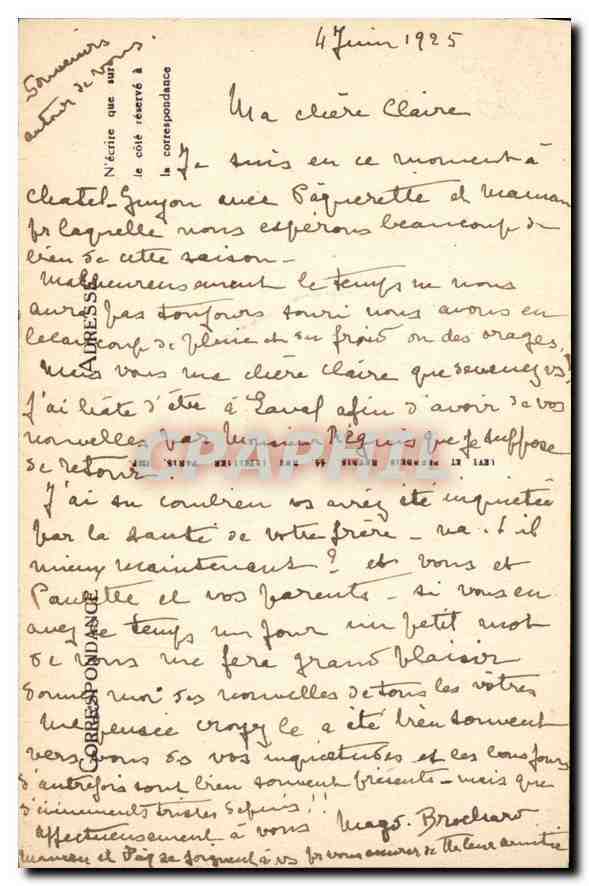 4 Juin 1925
Souvenirs
autour de vous.
N'écrire que sur
le côté réservé à
la correspondance
Ma chère Claire
Je suis en ce moment à
Chatel-Guyon avec Pâquerette et Maman
pr laquelle nous espérons beaucoup de
bien de cette saison -
Malheureusement le temps ne nous
aura pas toujours souri nous avons eu
beaucoup de pluie et du froid ou des orages,
Mais vous ma chère Claire que devenez vs?
J'ai hâte d'être à Laval afin d'avoir de vos
nouvelles par Monsieur que je suppose
de retour
J'ai su combien vs aviez été inquiétée
par la santé de votre frère - va-t-il
mieux maintenant? et vous et
Paulette et vos parents - si vous en
avez le temps un jour un petit mot
de vous me fera grand plaisir
donnez moi des nouvelles de tous les vôtres
Ma pensée croyez le a été bien souvent
vers vous ds vos inquiétudes et les bons jours
d'autrefois sont bien souvent présents - mais que
d'évènements tristes depuis!!
affectueusement à vous Magd. Brochard
Maman et Pâq se joignent à vs pr vous assurer de tte leur amitié
ADRESSE
CORRESPONDANCE
LEVY ET NEURDEIN REUNIS 44 RUE LETELLIER PARIS
CPAPHIL